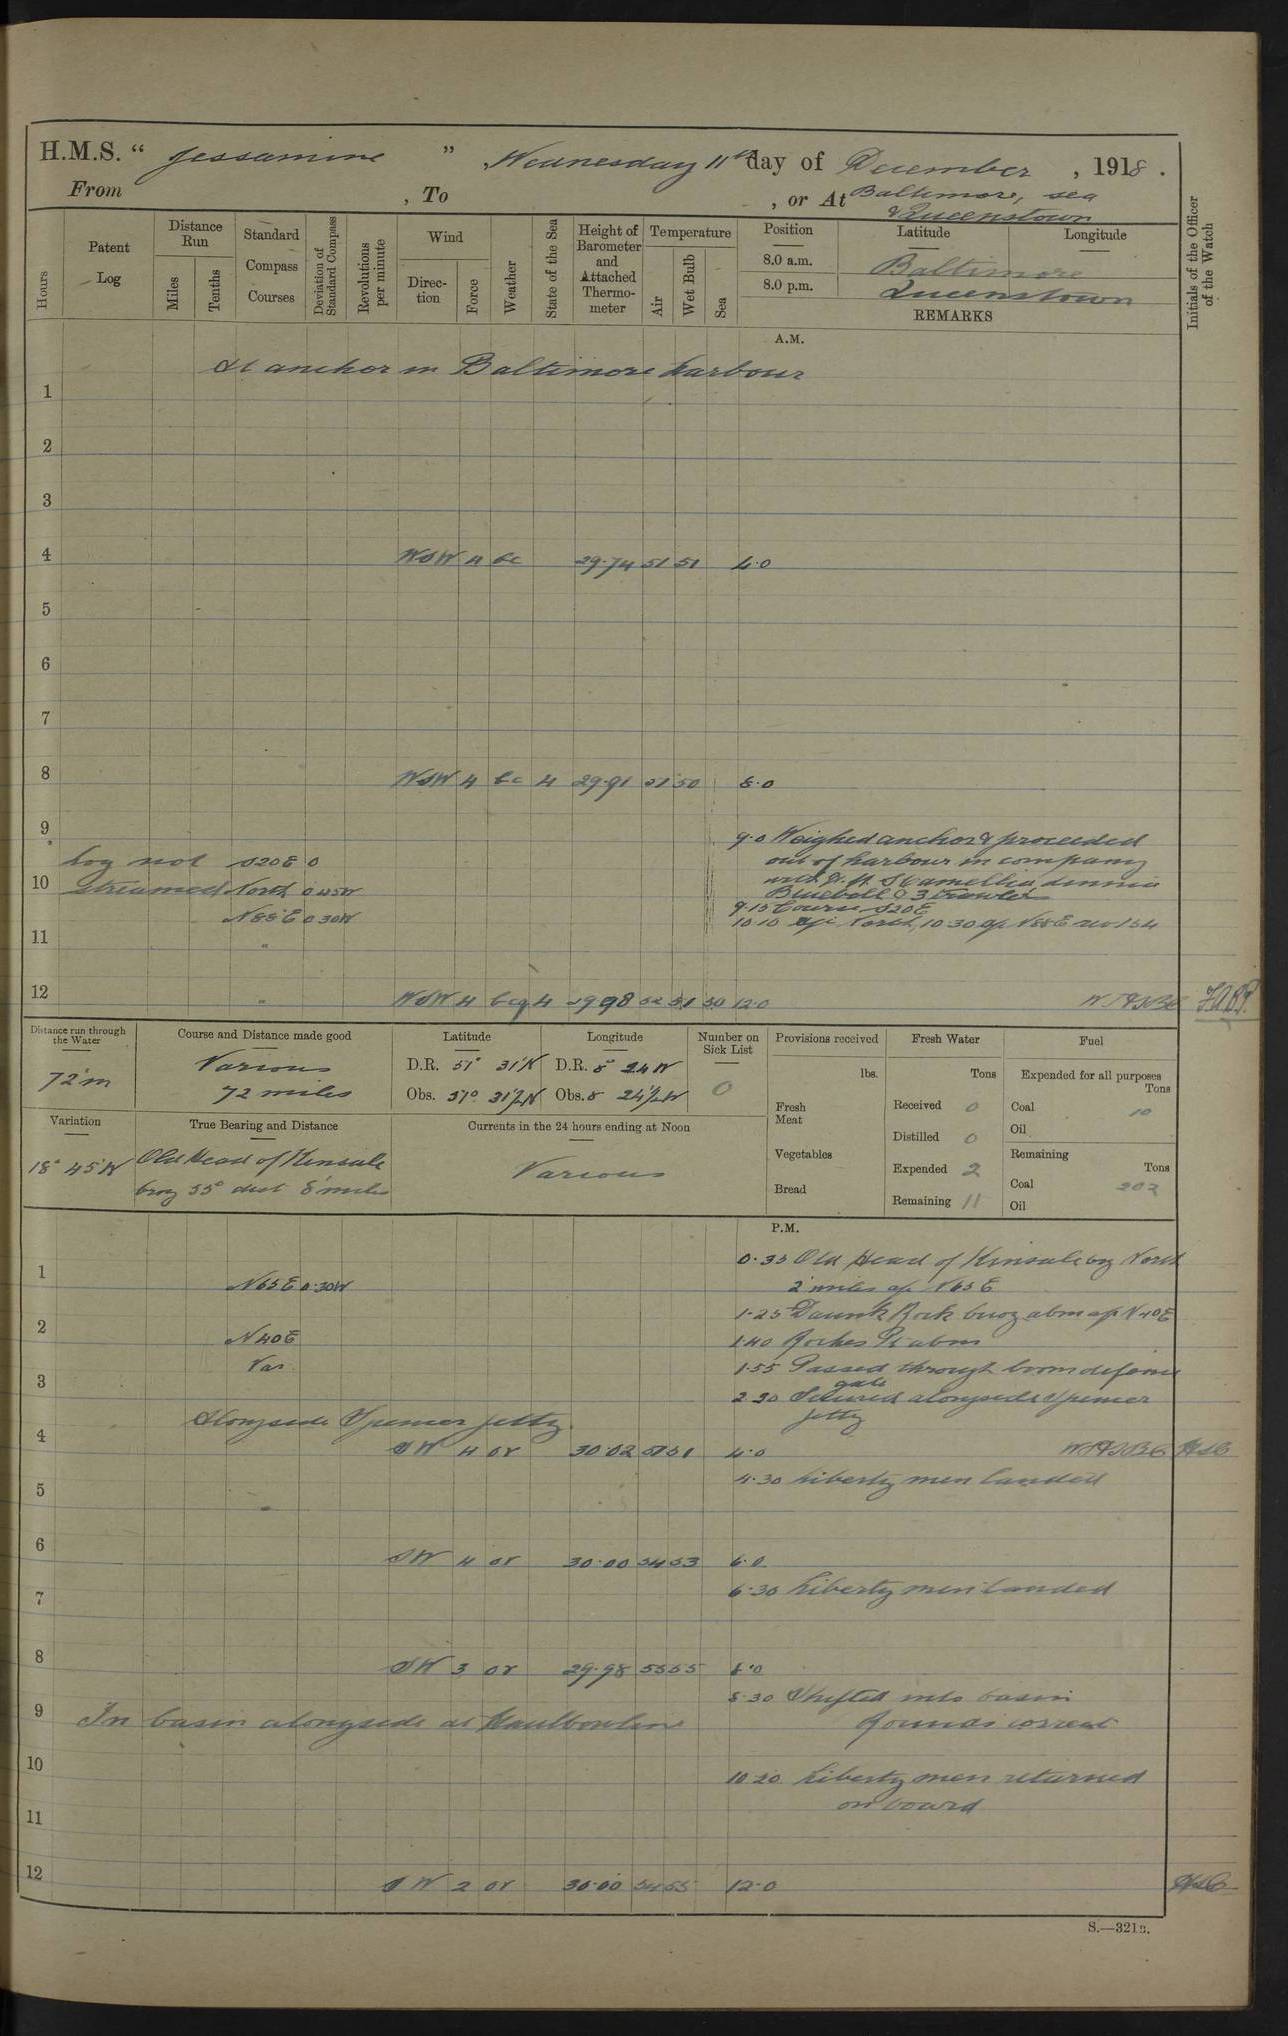 H.M.S. “ Jessamine ” Wednesday 11th day of December , 1918 .
From , To , or At Baltimore, sea
Queenstown
Hours
Patent Log
Distance Run
Miles
Tenths
Standard Compass Courses
Deviation of Standard Compass
Revolutions per minute
Wind
Direction
Force
Weather
State of the Sea
Height of Barometer and Attached Thermometer
Temperature
Air
Wet Bulb
Sea
Position
Latitude
Longitude
8.0 a.m. Baltimore
8.0 p.m. Queenstown
REMARKS
Initials of the Officer of the Watch
A.M.
At anchor in Baltimore harbour
1
2
3
4 WSW 4 bc 29.74 51 51 4.0
5
6
7
8 WSW 4 bc 4 29.91 51 50 8.0
9
9.0 Weighed anchor & proceeded
Log not S20E 0 out of harbour in company
with Camellia
10 streamed North 0.45W Bluebell & 3 trawlers
9.15 Course S20E
N88E 0.30W 10.10 a/c North, 10.30 a/c N88E
11 "
12 " WSW 4 bcq 4 29.98 52 51 50 12.0
Distance run through the Water
72 m
Course and Distance made good
Various
72 miles
Latitude
D.R. 51° 31'N
Obs. 51° 31½N
Longitude
D.R. 8° 24W
Obs. 8 24½W
Number on Sick List
0
Variation
18° 45'W
True Bearing and Distance
Old Head of Kinsale
brg 55° dist 8 miles
Currents in the 24 hours ending at Noon
Various
Provisions received
lbs.
Fresh Meat
Vegetables
Bread
Fresh Water
Tons
Received 0
Distilled 0
Expended 2
Remaining 11
Fuel
Expended for all purposes
Tons
Coal 10
Oil
Remaining
Tons
Coal 202
Oil
P.M.
0.35 Old Head of Kinsale brg North
1 N65E 0.30W 2 miles a/c N65E
1.25 Daunt Rock buoy abm a/c N40E
2 N40E 1.40 Roches Pt abm
Var. 1.55 Passed through boom defence
gate
3 2.30 Secured alongside Spencer
jetty
Alongside Spencer jetty
4 SW 4 or 30.02 51 51 4.0
4.30 Liberty men landed
5 "
6 SW 4 or 30.00 54 53 6.0
6.30 Liberty men landed
7
8 SW 3 or 29.98 55 55 8.0
8.30 Shifted into basin
9 In basin alongside at Haulbowline Rounds correct
10 10.20 Liberty men returned
on board
11
12 SW 2 or 30.00 54 55 12.0
S.—321B.